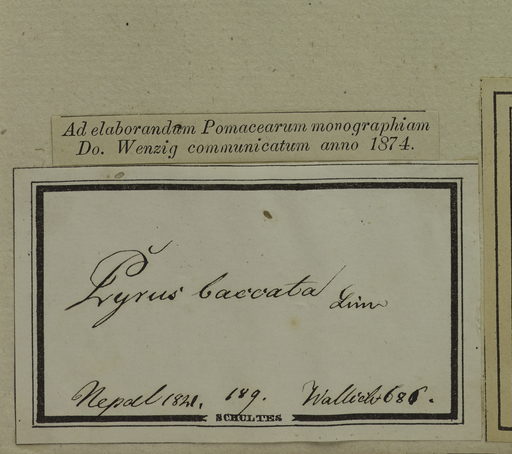 Ad elaborandum Pomacearum monographiam
Do. Wenzig communicatum anno 1874.
Pyrus baccata Linn
Nepal 1821. 189. Wallich 686.
SCHULTES